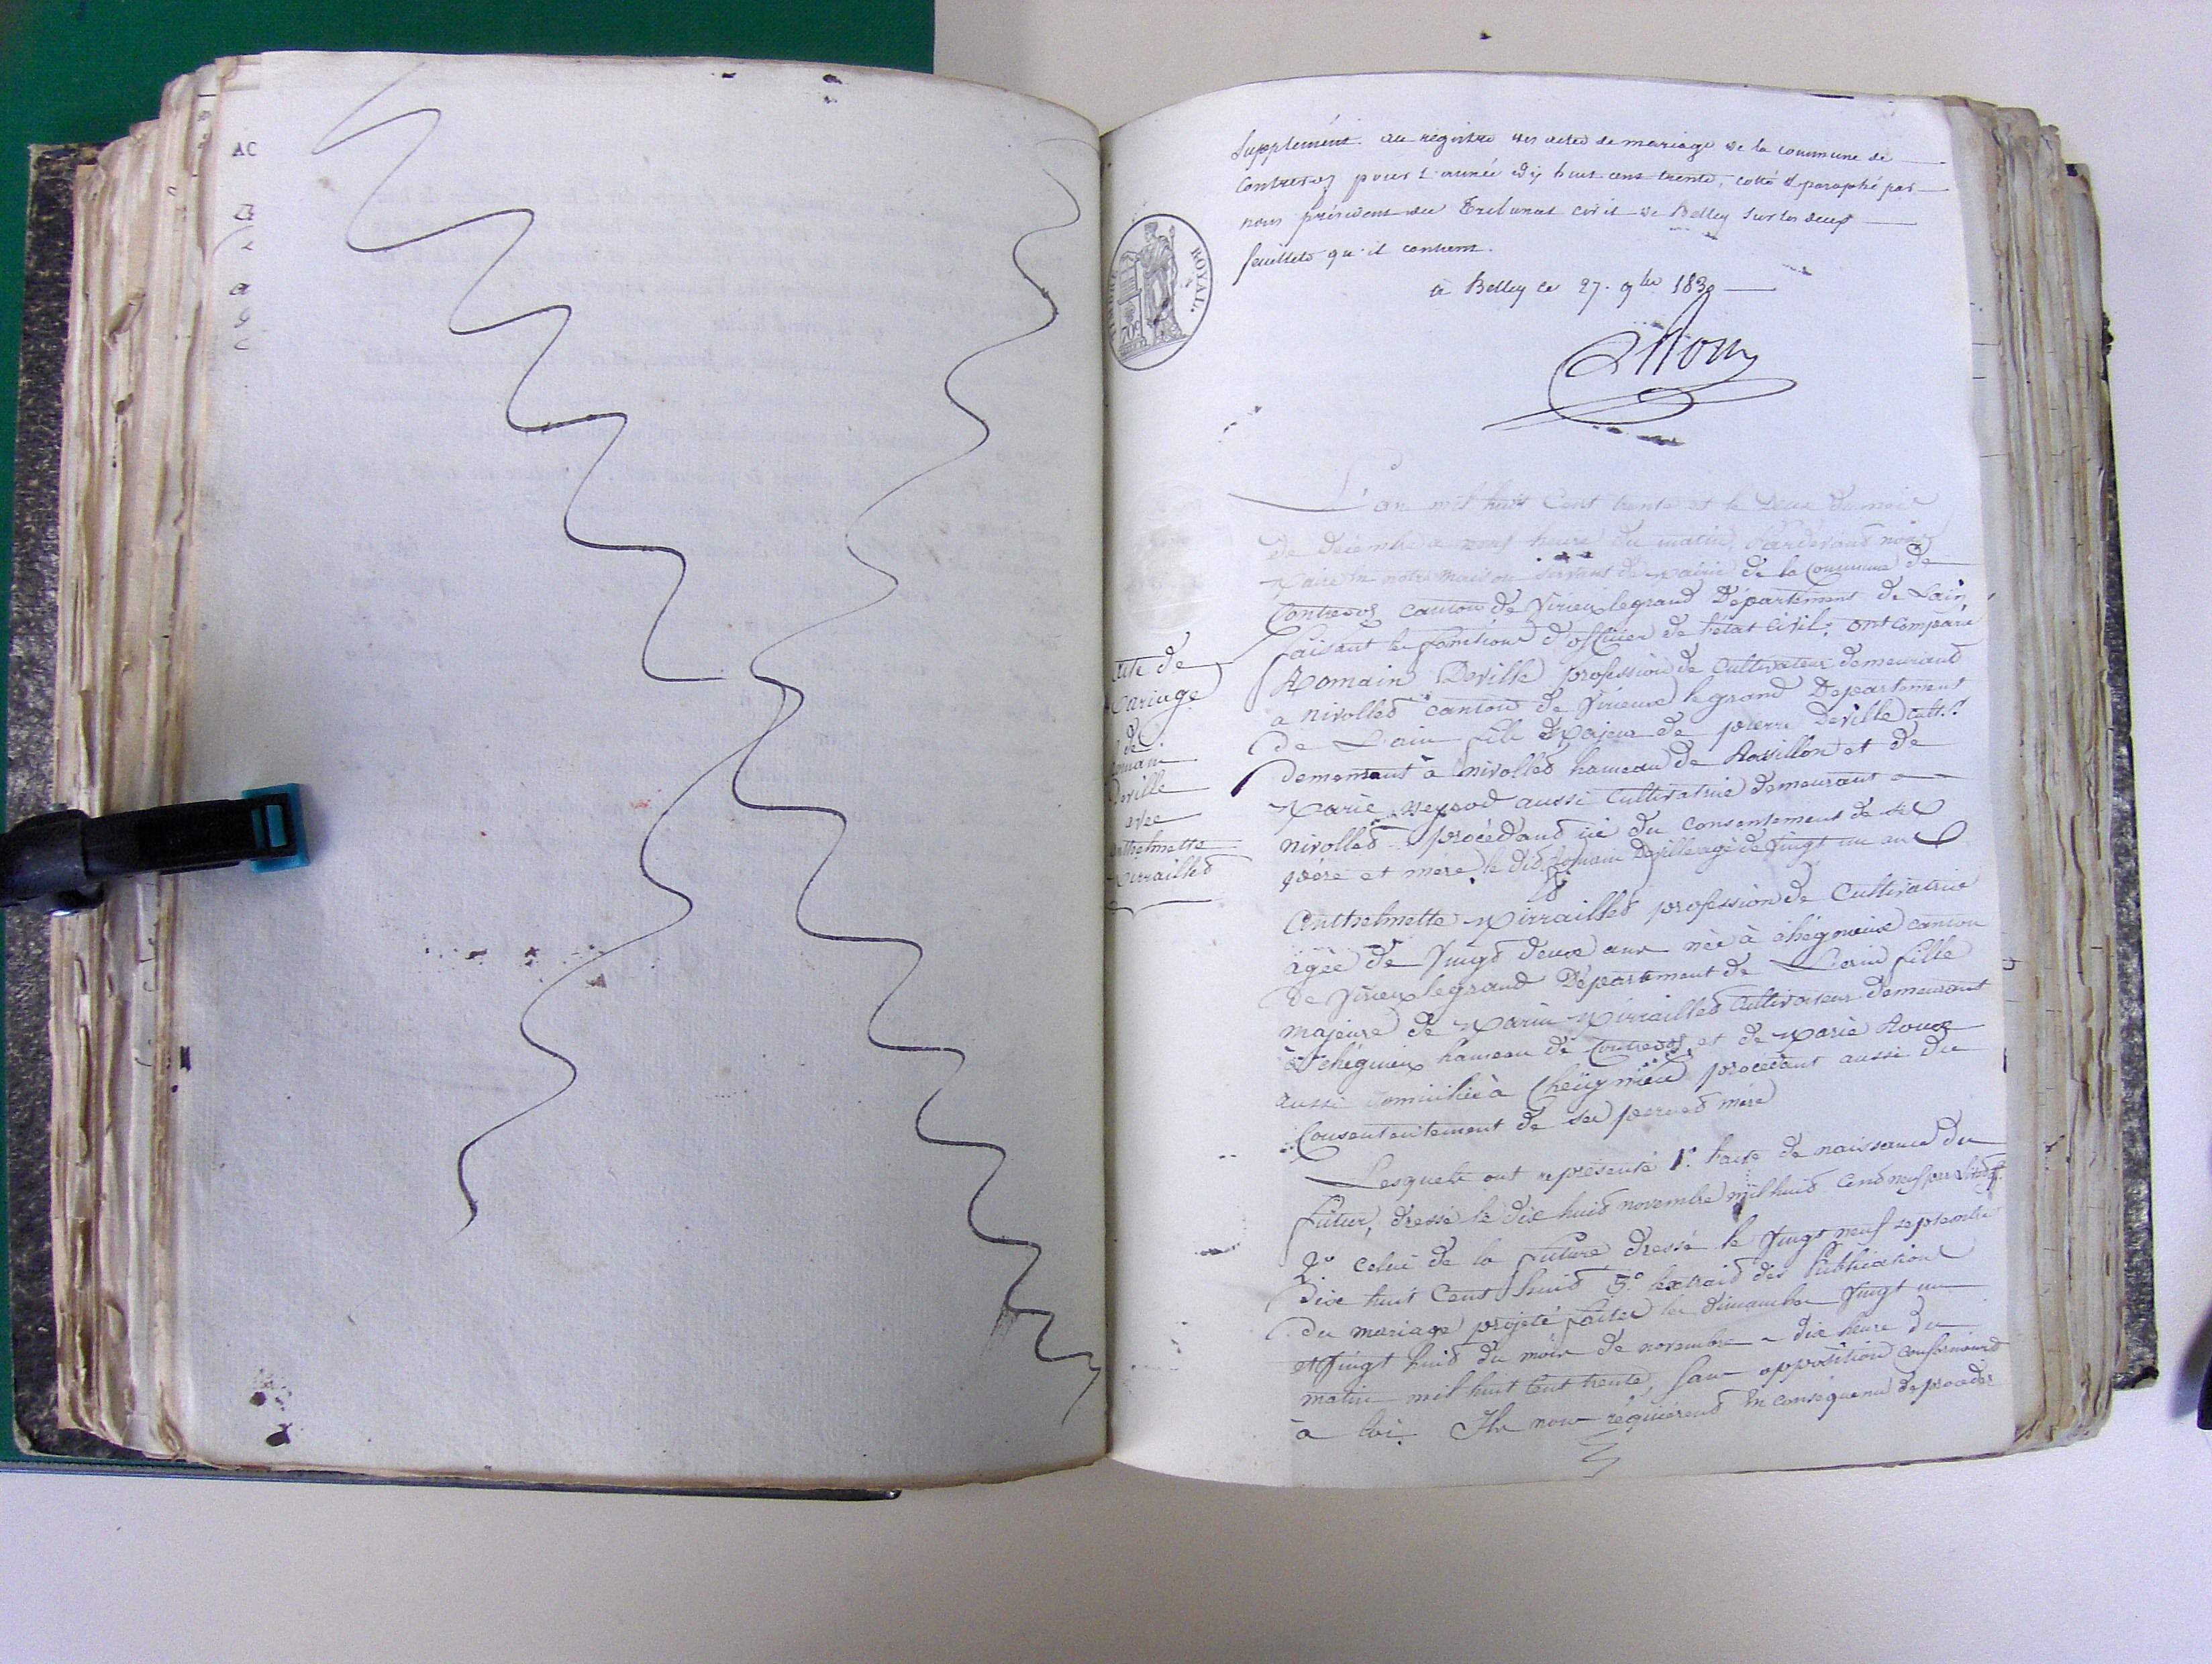 Supplément au registre des actes de mariage de la commune de
Contrevoz pour l'année dix huit cent trente, cotté et paraphé par
nous président du Tribunal civil de Belley sur les deux
feuillets qu'il contient.
à Belley le 27. 9bre 1830
TIMBRE ROYAL.
L'an mil huit Cent trente et le deux du mois
de décembre a neuf heure du matin, Pardevant nous
Maire en notre maison servant de Mairie de la Commune de
Contrevoz canton de Virieu legrand Département de Lain,
faisant les fonctions d'officier de l'état Civil; ont comparu
Romain Deville profession de Cultivateur demeurant
a nivolled canton de Virieux le grand Departement
de Lain fils Majeur de pierre Deville cult.r
demeurant à nivolled hameau de Rossillon et de
Marie aussi Cultivatrice demeurant a
nivolled procédant ici du consentement de ses
père et mère le dit Romain Deville agé de vingt un ans
Anthelmette Mirrailled profession de Cultivatrice
agée de Vingt deux ans née à chégnieux canton
de Virieux legrand Département de Lain fille
majeure de Marin Mirrailled Cultivateur demeurant
à chégnieux hameau de Contrevoz et de Marie Roux
aussi domiciliée à Cheignieu procédant aussi du
Consentement de ses père et mère
Lesquels ont représenté 1.o l'acte de naissance du
futur, dressé le dix huit novembre mil huit Cent neuf
2o celui de la future dressé le Vingt neuf septembre
dix huit Cent huit 3o lextrait des Publications
du mariage projeté faites les dimanches Vingt un
et Vingt huit du mois de novembre a dix heure du
matin mil huit Cent trente Sans opposition conformément
à loi. Ils nous réquièrent En conséquence de procéder
acte de
Mariage
de
Romain
Deville
avec
Anthelmette
Mirrailled